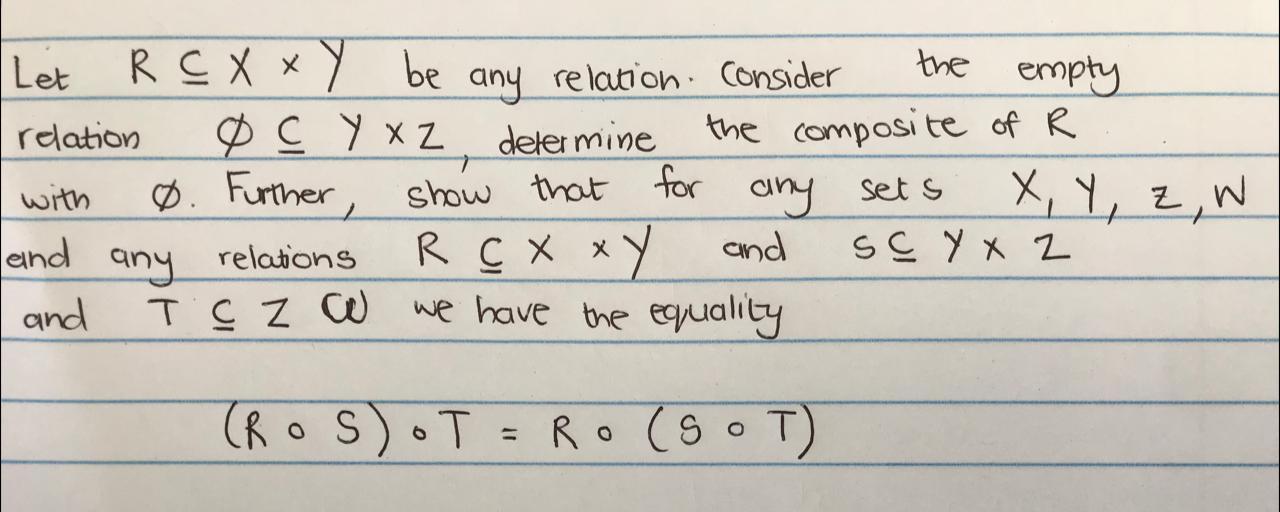 Let R ⊆ X × Y be any relation. Consider the empty
relation ∅ ⊆ Y × Z, determine the composite of R
with ∅. Further, show that for any sets X, Y, Z, W
and any relations R ⊆ X × Y and S ⊆ Y × Z
and T ⊆ Z W we have the equality
(R ∘ S) ∘ T = R ∘ (S ∘ T)